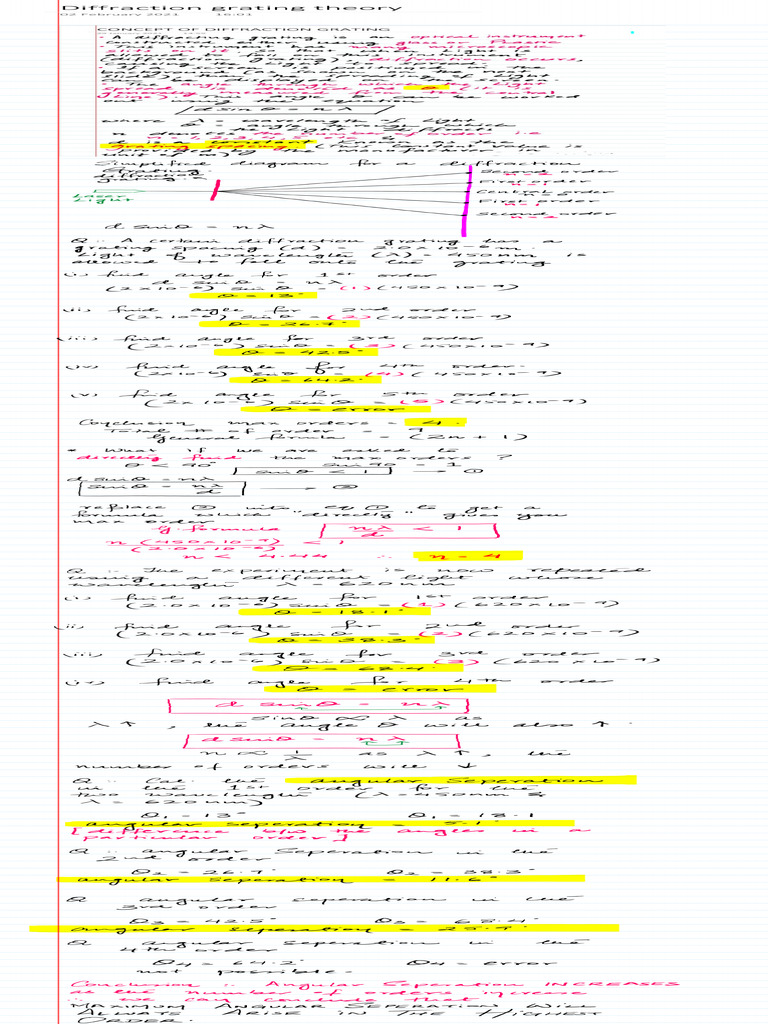 Diffraction grating theory
02 February 2021 16:01
CONCEPT OF DIFFRACTION GRATING
- A diffracting grating is an optical instrument
using glass or Plastic
- This instrument has many microscopic
slits on it so that when light is
allowed to fall on this instrument
(diffraction grating) diffraction occurs,
d sin θ = n λ
where λ = wavelength of light
n denotes the number of order i.e
d is a constant known as the
grating spacing
unit of m)
Simplified diagram for a diffraction
Grating
diffraction
grating
Second order
n = 2
First order
n = 1
Central order
n = 0
First order
n = 1
Second order
n = 2
Laser
Light
d sin θ = nλ
Q:- A certain diffraction grating has a
grating spacing (d) = 2.0 x 10⁻⁶ m.
Light of wavelength (λ) = 450nm is
allowed to fall onto the grating
(i) find angle for 1st order
d sin θ = nλ
(2 x 10⁻⁶) sin θ = (1) (450 x 10⁻⁹)
θ = 13°
(ii) find angle for 2nd order
(2 x 10⁻⁶) sin θ = (2) (450 x 10⁻⁹)
θ = 26.7°
(iii) find angle for 3rd order
(2 x 10⁻⁶) sin θ = (3) (450 x 10⁻⁹)
θ = 42.5°
(iv) find angle for 4th order.
(2 x 10⁻⁶) sin θ = (4) (450 x 10⁻⁹)
θ = 64.2°
(v) find angle for 5th order
(2 x 10⁻⁶) sin θ = (5) (450 x 10⁻⁹)
θ = error
Conclusion max orders = 4.
Total # of order = 9
General formula = (2n + 1)
* What if we are asked to
directly find the max orders ?
θ < 90° sin 90 = 1
sin θ < 1 → ①
d sin θ = nλ
sin θ = nλ/d → ②
replace ② into eq ① to get a
formula which "directly" gives you
max order
By formula nλ/d < 1
n (450 x 10⁻⁹)/(2.0 x 10⁻⁶) < 1
n < 4.44 ∴ n = 4
Q:- The experiment is now repeated
using a different light whose
wavelength λ = 620nm
(i) find angle for 1st order
(2.0 x 10⁻⁶) sin θ = (1) (620 x 10⁻⁹)
θ = 18.1°
(ii) find angle for 2nd order
(2.0 x 10⁻⁶) sin θ = (2) (620 x 10⁻⁹)
θ = 38.3°
(iii) find angle for 3rd order
(2.0 x 10⁻⁶) sin θ = (3) (620 x 10⁻⁹)
θ = 68.4°
(iv) find angle for 4th order
θ = error
d sin θ = nλ
sin θ ∝ λ as
λ ↑, the angle θ will also ↑.
d sin θ = nλ
n ∝ 1/λ as λ ↑, the
number of orders will ↓
Q:- Cal. the angular Seperation
in the 1st order for the
two wavelength (λ = 450nm &
λ = 620nm)
θ₁ = 13° θ₁ = 18.1
angular seperation = 5.1°
[difference b/w the angles in a
particular order]
Q:- angular Seperation in the
2nd order
θ₂ = 26.7° θ₂ = 38.3°
angular seperation = 11.6°
Q angular seperation in the
3rd order
θ₃ = 42.5° θ₃ = 68.4°
angular seperation = 25.9°
Q angular seperation in the
4th order
θ₄ = 64.2° θ₄ = error
not possible.
Conclusion :- Angular Seperation INCREASES
as the number of orders increase
∴ we can conclude that
MAXIMUM ANGULAR SEPERATION WILL
ALWAYS ARISE IN THE HIGHEST
ORDER.